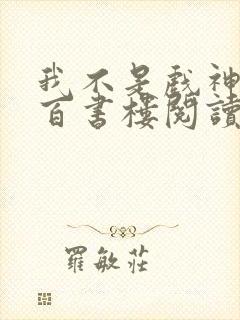 我不是戲神
百書樓閱讀
羅敏莊